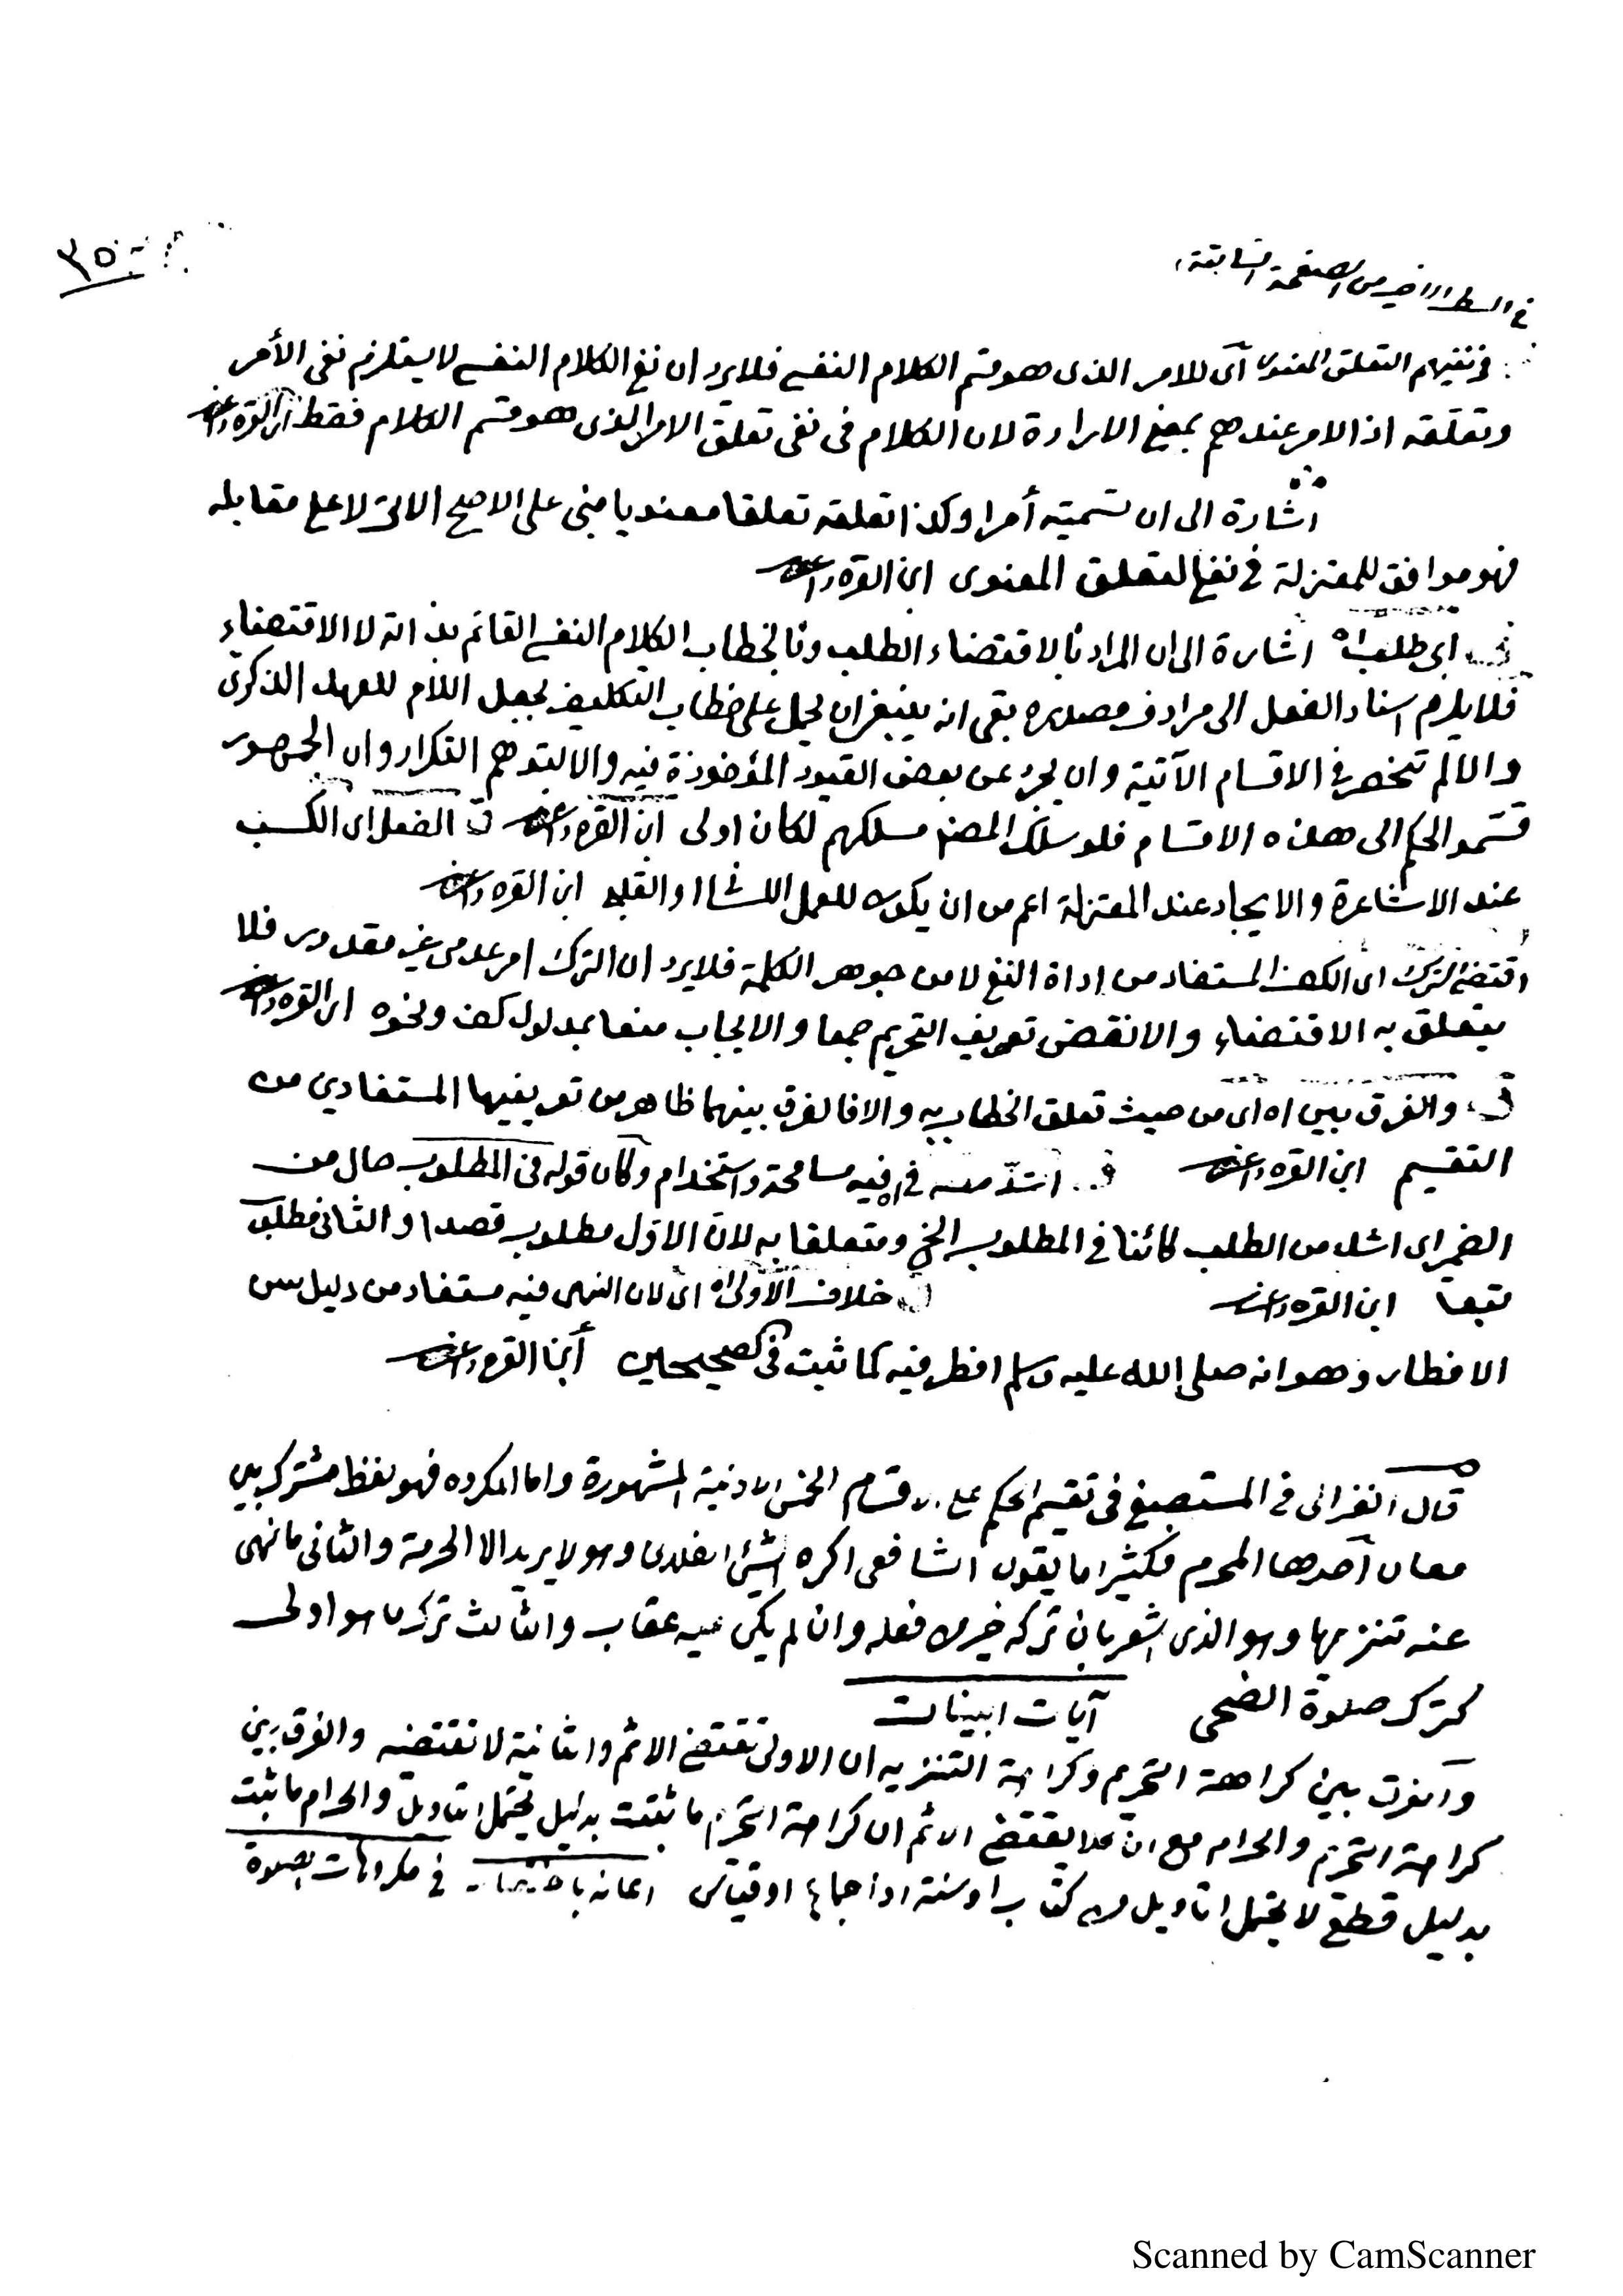 ٣٥
في السطر الاخير من الصفحة السابقة
في نفيهم التعلق المعنوى أى للامر الذى هو قسم الكلام النفسي فلا يرد ان نفي الكلام النفسي لا يستلزم نفى الأمر
وتعلقه اذ الامر عندهم بمعنى الارادة لان الكلام فى نفى تعلق الامر الذى هو قسم الكلام فقط ابن القره داغى
اشارة الى ان تسميته أمرا وكذا تعلقه تعلقا معنويا مبنى على الاصح الاتى لا على مقابله
فهو موافق للمعتزلة في نفي التعلق المعنوى ابن القره داغى
اى طلب اه اشارة الى ان المراد بالاقتضاء الطلب وبالخطاب الكلام النفسي القائم بذاته لا الاقتضاء
فلا يلزم اسناد الفعل الى مرادف مصدره بقى انه ينبغى ان يحمل على خطاب التكليف بجعل اللام للعهد الذكرى
والا لم تنحصر في الاقسام الآتية وان يجرد عن بعض القيود المأخوذة فيه والا لتوهم التكرار وان الجمهور
قسموا الحكم الى هذه الاقسام فلو سلك المصنف مسلكهم لكان اولى ابن القره داغى ق الفعل اى الكسب
عند الاشاعرة والايجاد عند المعتزلة اعم من ان يكون للعمل اللسانى او القلبى ابن القره داغى
اقتضى الترك اى الكف المستفاد من اداة النفي لا من جوهر الكلمة فلا يرد ان الترك امر عدمى غير مقدور فلا
يتعلق به الاقتضاء والا نقض تعريف التحريم جمعا والايجاب منعا بمدلول كف ونحوه ابن القره داغى
ق والفرق بين اه اى من حيث تعلق الخطاب به والا فالفرق بينهما ظاهر من تعريفيهما المستفادين من
التقسيم ابن القره داغى ق اشد منه فيه مسامحة واستخدام وكان قوله فى المطلوب حال من
الضمير اى اشد من الطلب كائنا في المطلوب الخ ومتعلقا به لان الاول مطلوب قصدا والثانى مطلوب
تبعا ابن القره داغى ق خلاف الأولى اه اى لان النهى فيه مستفاد من دليل سن
الافطار وهو انه صلى الله عليه وسلم افطر فيه كما ثبت فى الصحيحين ابن القره داغى
قال الغزالى في المستصفى فى تقسيم الحكم على الاقسام الخمس الادنية المشهورة واما المكروه فهو لفظ مشترك بين
معان أحدها المحرم فكثيرا ما يقول الشافعى اكره الشئ الفلانى وهو لا يريد الا الحرمة والثانى ما نهى
عنه تنزيها وهو الذى اشعر بان تركه خير من فعله وان لم يكن عليه عقاب والثالث ترك ما هو اولى
كترك صلوة الضحى آيات البينات
والفرق بين كراهة التحريم وكراهة التنزيه ان الاولى تقتضى الاثم والثانية لا تقتضيه والفرق بين
كراهة التحريم والحرام مع ان كلا يقتضى الاثم ان كراهة التحريم ما ثبتت بدليل يحتمل التأويل والحرام ما ثبت
بدليل قطعى لا يحتمل التأويل من كتاب او سنة او اجماع او قياس اعانة باختصار فى مكروهات الصلوة
Scanned by CamScanner